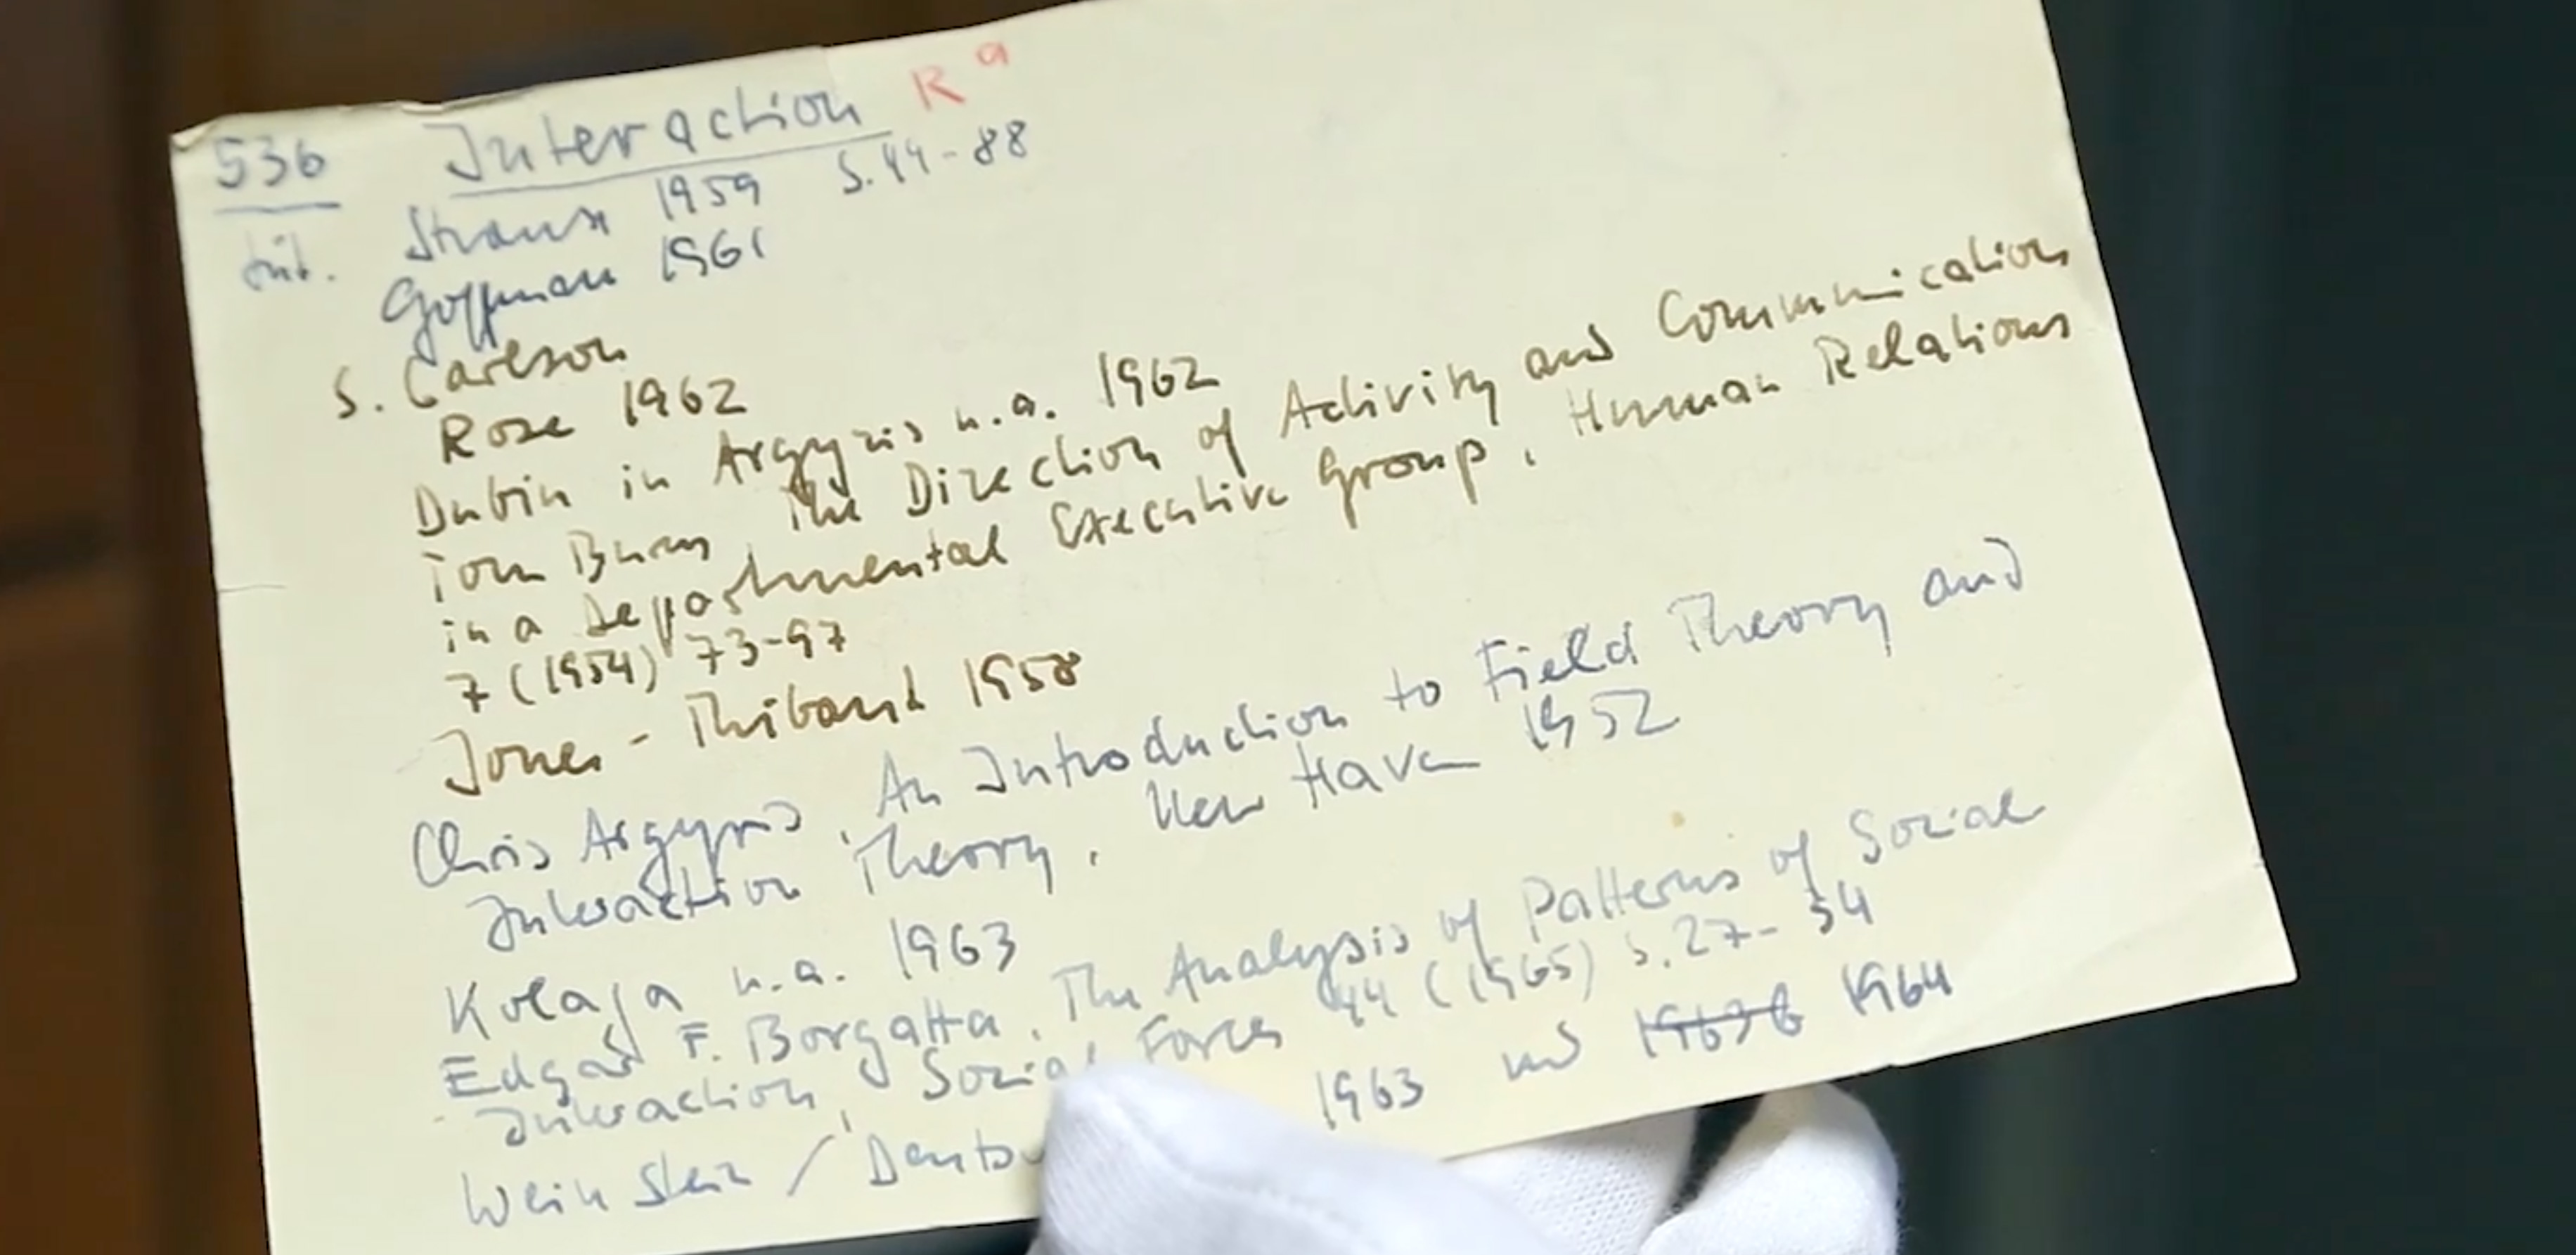 536 Interaction R a
Lit. Strauss 1959 S. 44-88
Goffman 1961
S. Carlson
Rose 1962
Dubin in Argyris u.a. 1962
Tom Burns, The Direction of Activity and Communication
in a Departmental Executive Group, Human Relations
7 (1954) 73-97
Jones - Thibaut 1958
Chris Argyris, An Introduction to Field Theory and
Interaction Theory, New Haven 1952
Kolaja u.a. 1963
Edgar F. Borgatta, The Analysis of Patterns of Social
Interaction, Social Forces 44 (1965) S. 27-34
Weinstein / 1963 und 1964